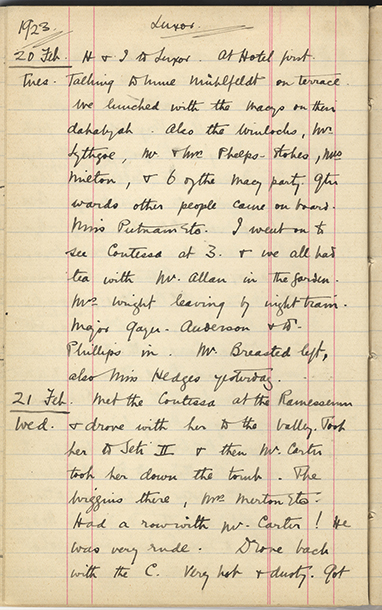 1923. Luxor.
20 Feb. H & I to Luxor. At Hotel first.
Tues. Talking to Mme Mühlfeldt on terrace.
We lunched with the Macys on their
dahabyah. Also the Winlocks, Mr
Lythgoe, Mr & Mrs Phelps-Stokes, Miss
Milton, & 6 of the Macy party. After
wards other people came on board.
Miss Putnam Etc. I went on to
see Contessa at 3. & we all had
tea with Mr. Allan in the garden.
Mrs Wright leaving by night train.
Major Gayer-Anderson & Dr
Phillips in. Mr. Breasted left,
also Miss Hedges yesterday.
21 Feb. Met the Contessa at the Ramesseum
Wed. & drove with her to the valley. Took
her to Seti II & then Mr. Carter
took her down the tomb. The
Wiggins there, Mrs Merton Etc.
Had a row with Mr. Carter! He
was very rude. Drove back
with the C. Very hot & dusty. Got